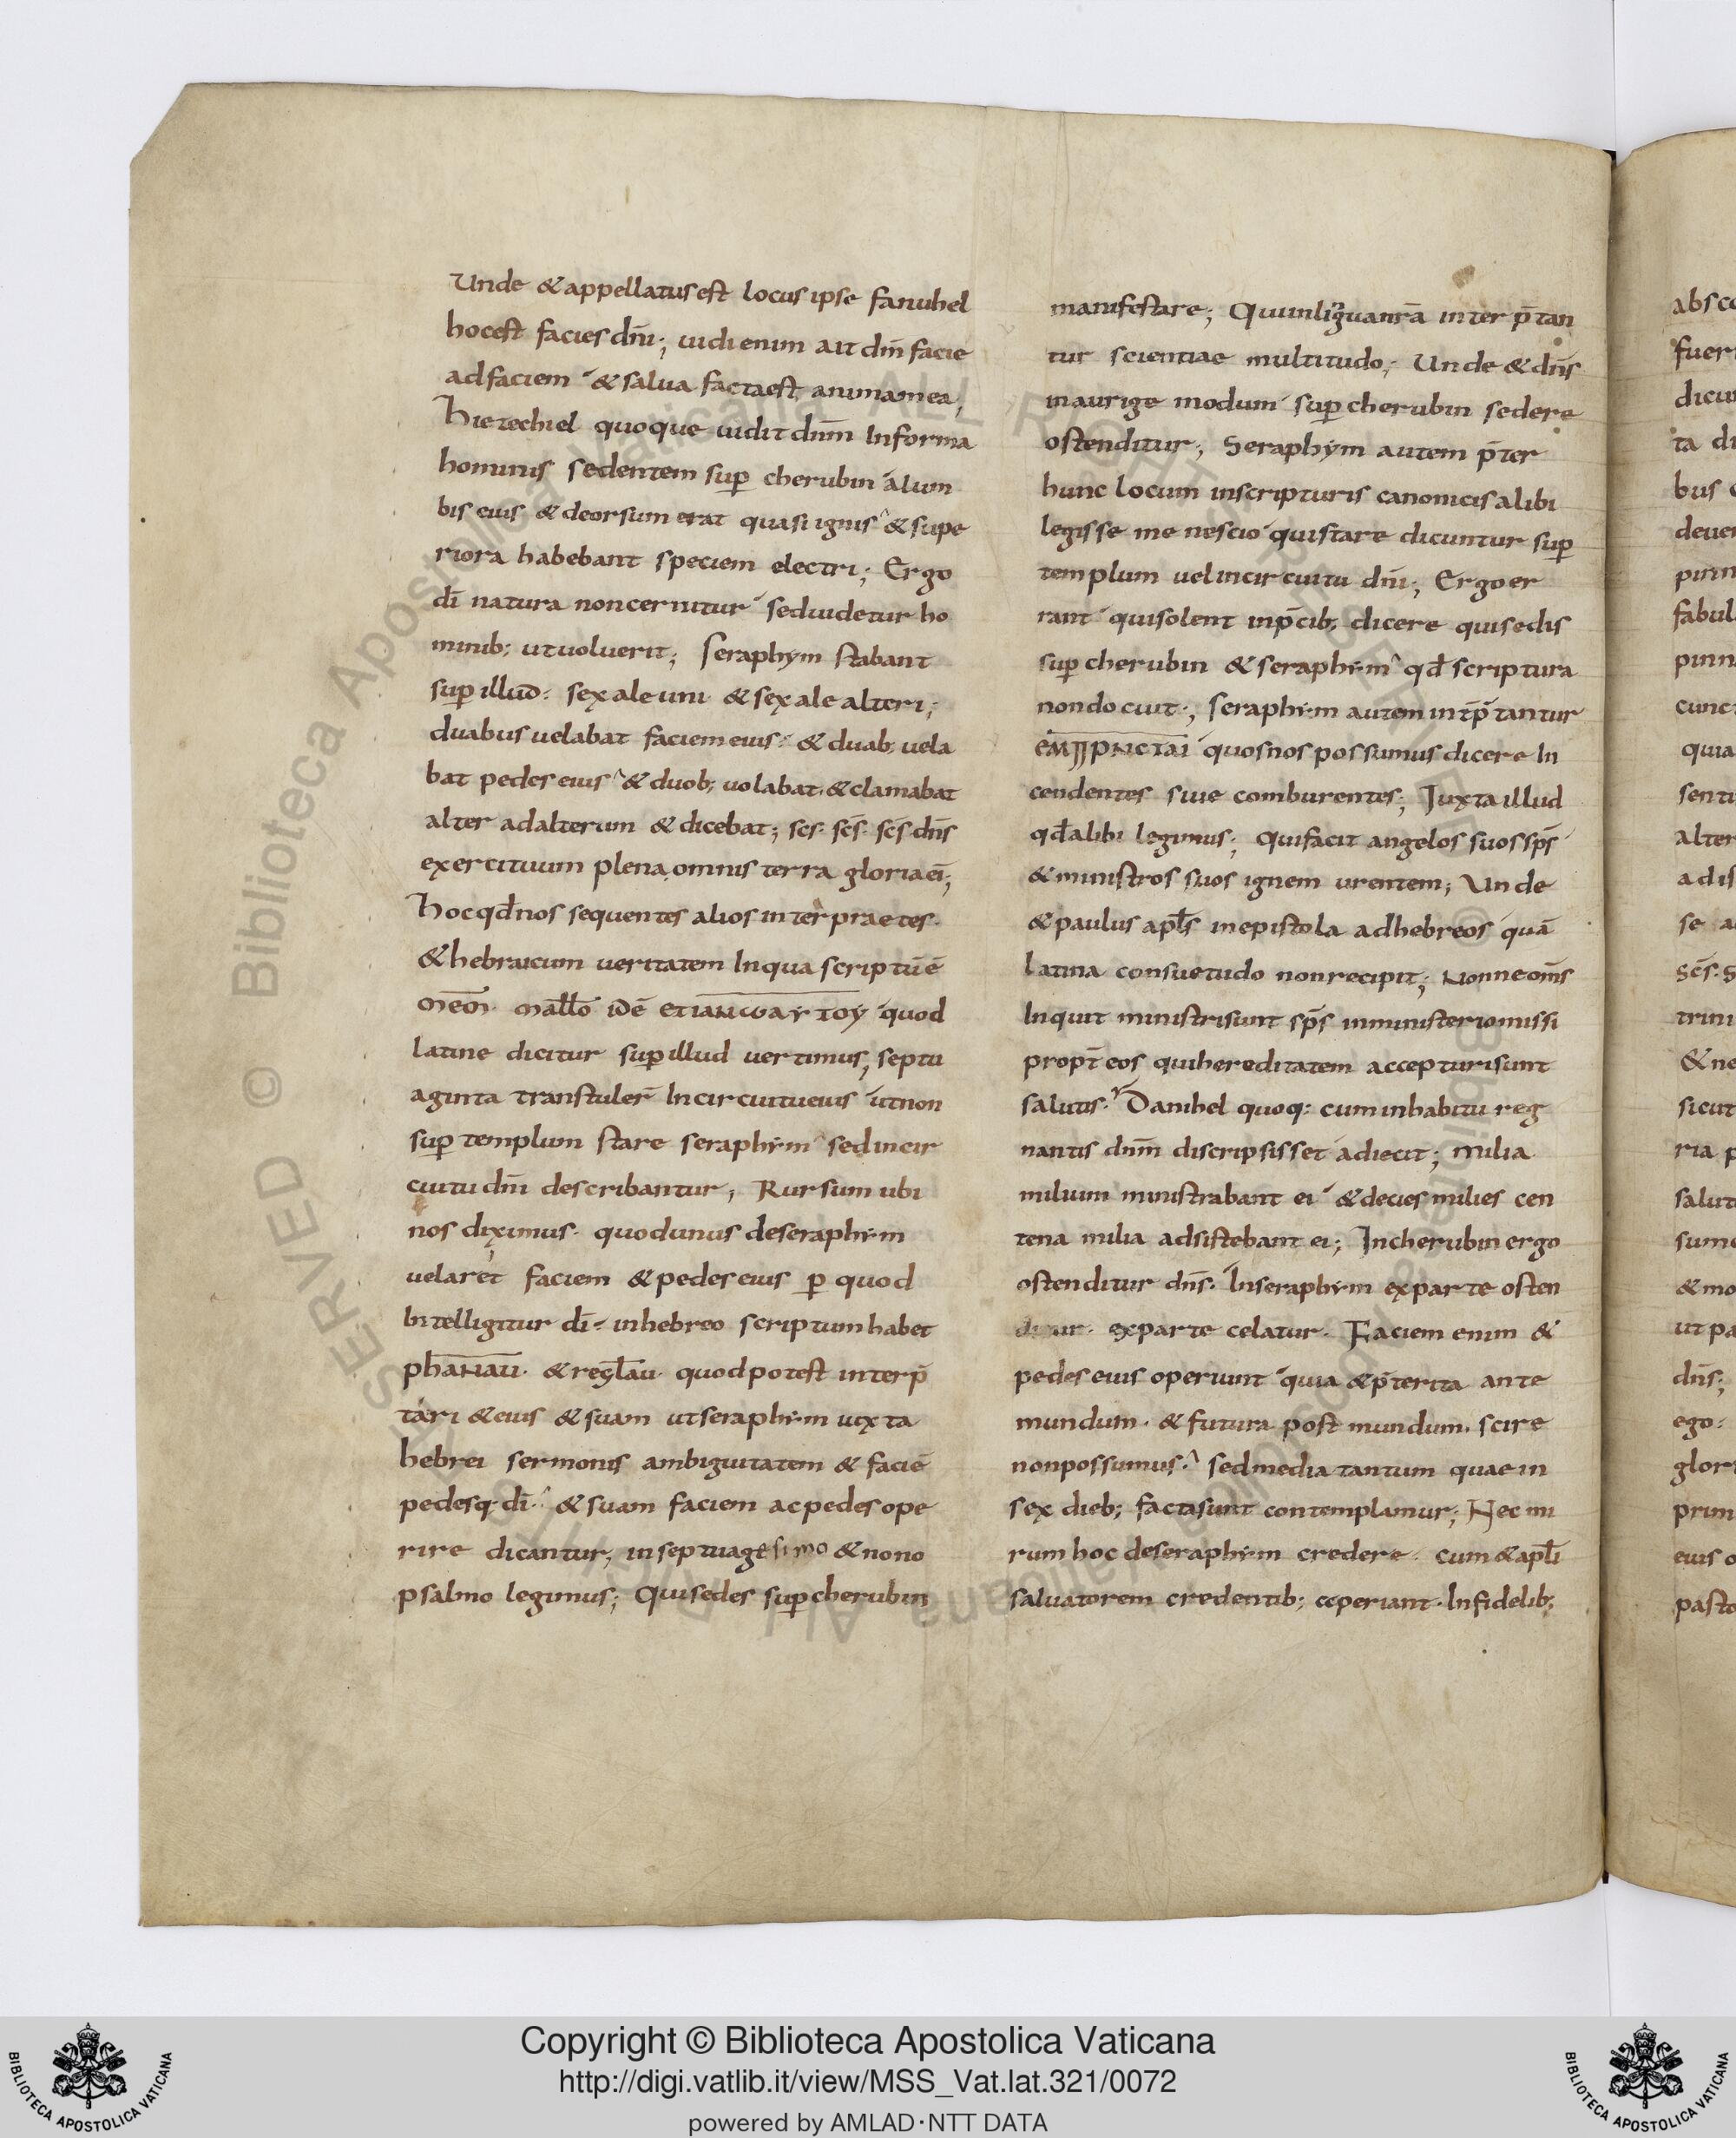 Unde & appellatus est locus ipse fanuhel
hoc est facies dn̄i; uidi enim ait dn̄m facie
ad faciem & salua facta est anima mea;
Hiezechiel quoque uidit dn̄m In forma
hominis sedentem sup̄ cherubin a lum
bis eius & deorsum erat quasi ignis & supe
riora habebant speciem electri; Ergo
dī natura non cernitur sed uidetur ho
minib; ut uoluerit; Seraphym stabant
sup̄ illud. sex ale uni & sex ale alteri;
duabus uelabat faciem eius. & duab; uela
bat pedes eius & duob; uolabat. & clamabat
alter ad alterum & dicebat; scs. scs̄. scs̄ dn̄s
exercituum plena omnis terra gloria eī;
Hoc qd̄ nos sequentes alios interpraetes.
& hebraicum ueritatem In qua scriptū ē
idē quod
latine dicitur sup̄ illud uertimus; septu
aginta transtuler̄ In circuitu eius ut non
sup̄ templum stare seraphim sed in cir
cuitu dn̄i describantur; Rursum ubi
nos diximus. quod unus de seraphim
uelaret faciem & pedes eius p̄ quod
Intelligitur dī. in hebreo scriptum habet
& quod potest interp̄
tari & eius & suam ut seraphim iuxta
hebrei sermonis ambiguitatem & faciē
pedesq; dī. & suam faciem ac pedes ope
rire dicantur; in septuagesimo & nono
psalmo legimus; Qui sedes sup̄ cherubin
manifestare; Qui in lingua nr̄a inter p̄tan
tur scientiae multitudo; Unde & dn̄s
in aurige modum sup̄ cherubin sedere
ostenditur; Seraphym autem p̄ter
hunc locum in scripturis canonicis alibi
legisse me nescio qui stare dicuntur sup̄
templum uel in circuitu dn̄i; Ergo er
rant qui solent in p̄cib; dicere qui sedis
sup̄ cherubin & seraphim qd̄ scriptura
non docuit; seraphim autem int̄p̄tantur
quos nos possumus dicere In
cendentes siue comburentes; Iuxta illud
qd̄ alibi legimus; Qui facit angelos suos sp̄s
& ministros suos ignem urentem; Unde
& paulus apl̄s in epistola ad hebreos quā
latina consuetudo non recipit; Nonne om̄s
Inquit ministri sunt sp̄s in ministerio missi
propt̄ eos qui hereditatem accepturi sunt
salutis. Danihel quoq; cum in habitu reg
nantis dn̄m discripsisset adiecit; milia
milium ministrabant ei & decies milies cen
tena milia adsistebant ei; In cherubin ergo
ostenditur dn̄s. In seraphim ex parte osten
ditur. ex parte celatur. Faciem enim &
pedes eius operiunt quia & p̄terita ante
mundum. & futura post mundum. scire
non possumus. sed media tantum quae in
sex dieb; facta sunt contemplamur; Nec mi
rum hoc de seraphim credere. cum & apl̄i
saluatorem credentib; ceperiant. Infidelib;
Copyright © Biblioteca Apostolica Vaticana
http://digi.vatlib.it/view/MSS_Vat.lat.321/0072
powered by AMLAD·NTT DATA
BIBLIOTECA APOSTOLICA VATICANA
BIBLIOTECA APOSTOLICA VATICANA